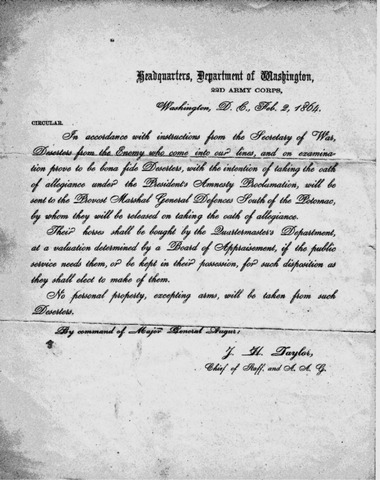 Headquarters, Department of Washington,
22D ARMY CORPS,
Washington, D. C., Feb. 2, 1864.
CIRCULAR.
In accordance with instructions from the Secretary of War,
Deserters from the Enemy who come into our lines, and on examina-
tion prove to be bona fide Deserters, with the intention of taking the oath
of allegiance under the President's Amnesty Proclamation, will be
sent to the Provost Marshal General Defences South of the Potomac,
by whom they will be released on taking the oath of allegiance.
Their horses shall be bought by the Quartermaster's Department,
at a valuation determined by a Board of Appraisement, if the public
service needs them, or be kept in their possession, for such disposition as
they shall elect to make of them.
No personal property, excepting arms, will be taken from such
Deserters.
By command of Major General Augur:
J. H. Taylor,
Chief of Staff, and A. A. G.